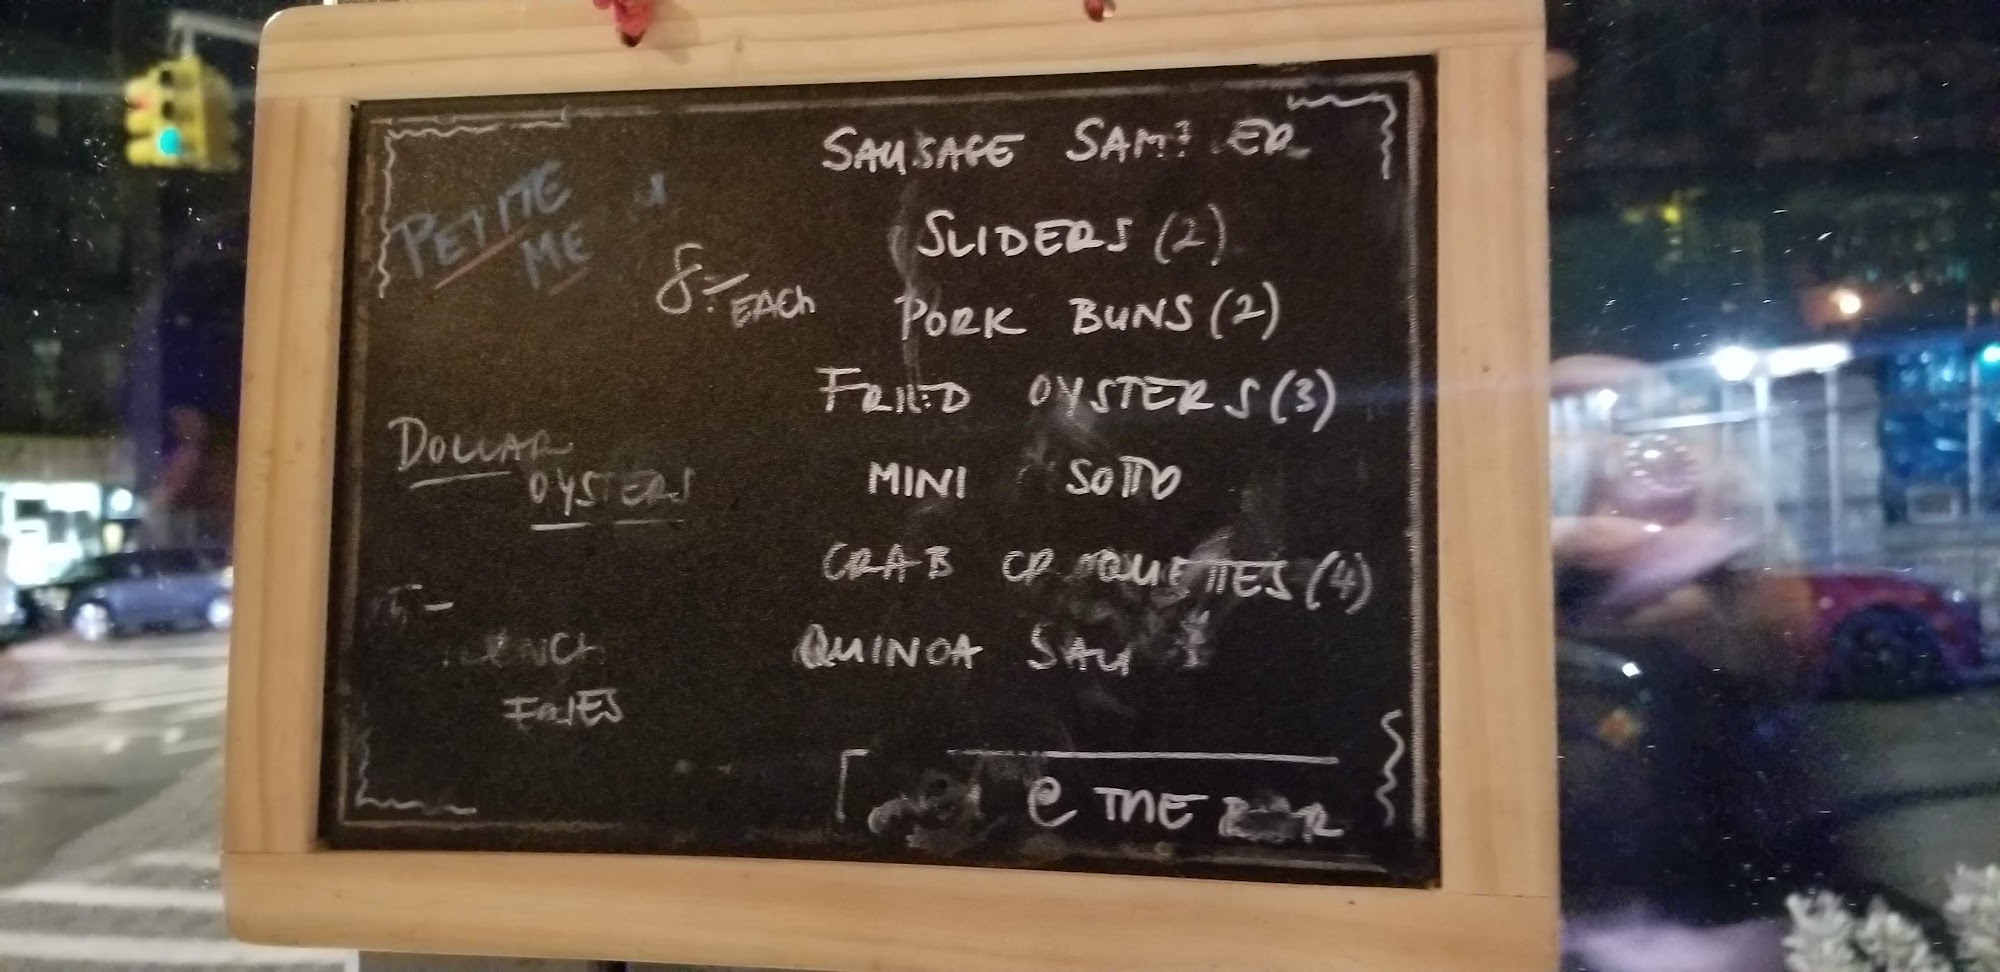 PETITE
ME
8 EACH
SAUSAGE SAMPLER
SLIDERS (2)
PORK BUNS (2)
FRIED OYSTERS (3)
MINI SOTTO
CRAB CROQUETTES (4)
QUINOA
DOLLAR
OYSTERS
FRENCH
FRIES
@ THE BAR